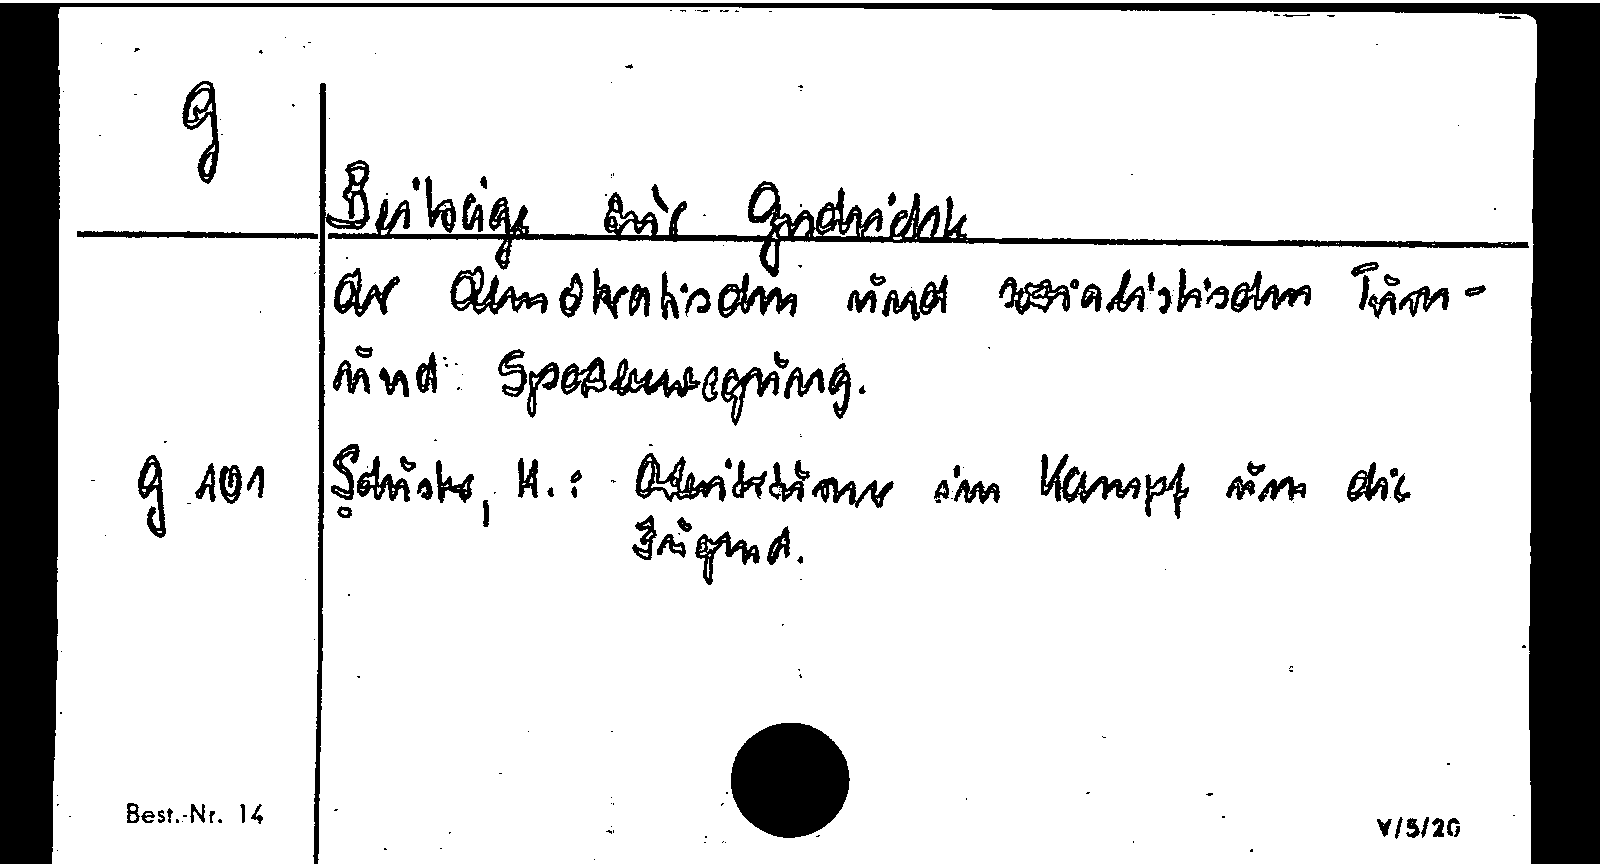 g
Beiträge zur Geschichte
der demokratischen und sozialistischen Turn-
und Sportbewegung.
g 101 Schuster, H.: Arbeiterturner im Kampf um die
Jugend.
Best.-Nr. 14
V/5/20